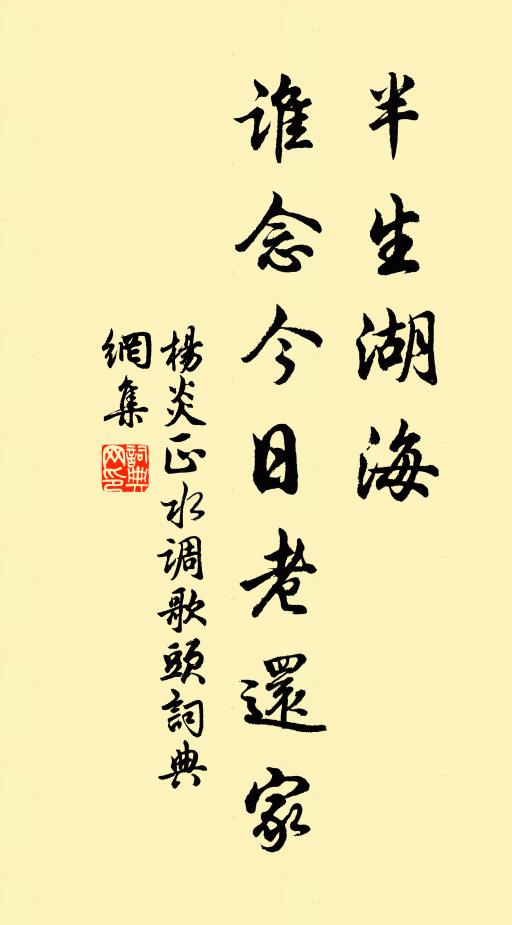 半生湖海
誰念今日老還家
楊炎正水调歌頭詞典
網集
詞典網印